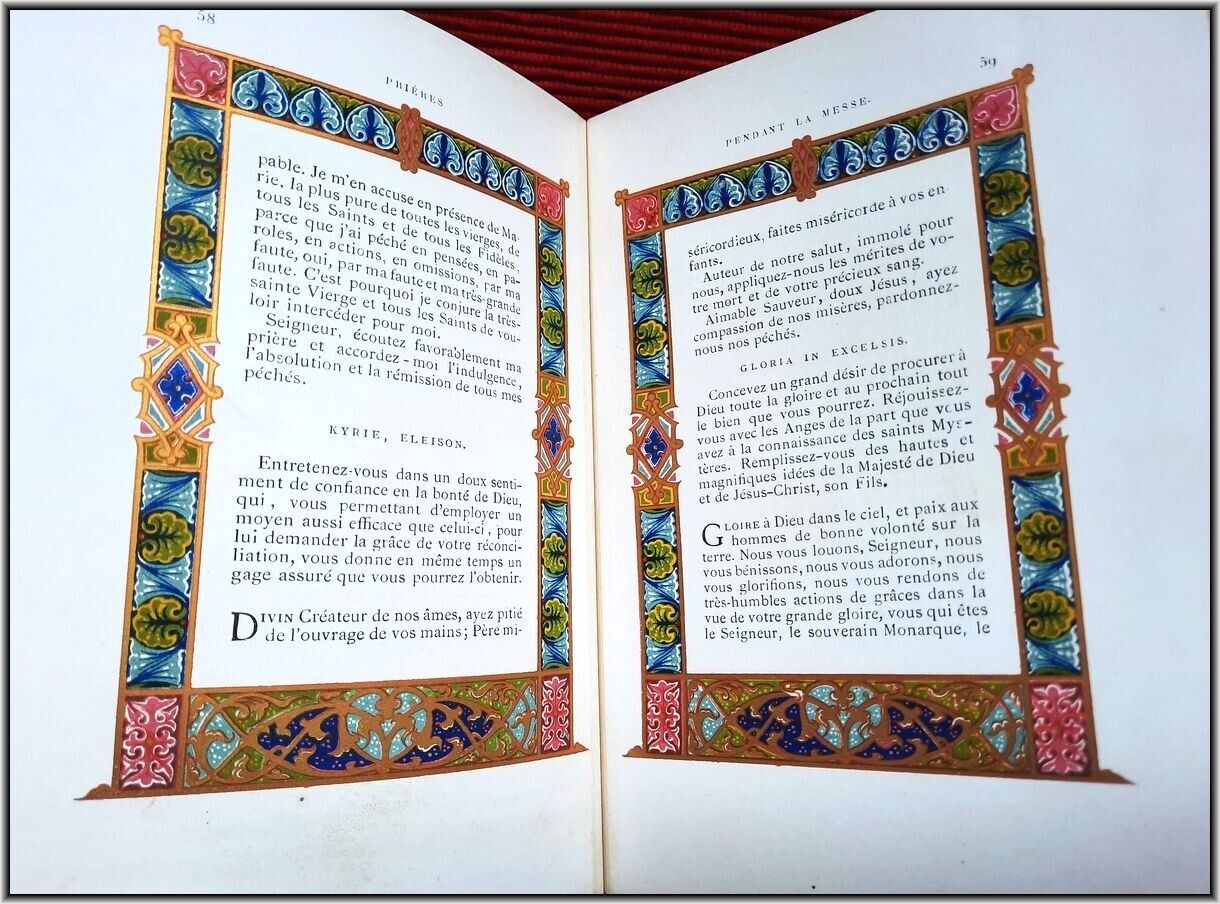 58
PRIÈRES
pable. Je m'en accuse en présence de Ma-
rie, la plus pure de toutes les vierges, de
tous les Saints et de tous les Fidèles,
parce que j'ai péché en pensées, en pa-
roles, en actions, en omissions, par ma
faute, oui, par ma faute et ma très-grande
faute. C'est pourquoi je conjure la très-
sainte Vierge et tous les Saints de vou-
loir intercéder pour moi.
Seigneur, écoutez favorablement ma
prière et accordez-moi l'indulgence,
l'absolution et la rémission de tous mes
péchés.
KYRIE, ELEISON.
Entretenez-vous dans un doux senti-
ment de confiance en la bonté de Dieu,
qui, vous permettant d'employer un
moyen aussi efficace que celui-ci, pour
lui demander la grâce de votre réconci-
liation, vous donne en même temps un
gage assuré que vous pourrez l'obtenir.
DIVIN Créateur de nos âmes, ayez pitié
de l'ouvrage de vos mains; Père mi-
59
PENDANT LA MESSE.
séricordieux, faites miséricorde à vos en-
fants.
Auteur de notre salut, immolé pour
nous, appliquez-nous les mérites de vo-
tre mort et de votre précieux sang.
Aimable Sauveur, doux Jésus, ayez
compassion de nos misères, pardonnez-
nous nos péchés.
GLORIA IN EXCELSIS.
Concevez un grand désir de procurer à
Dieu toute la gloire et au prochain tout
le bien que vous pourrez. Réjouissez-
vous avec les Anges de la part que vous
avez à la connaissance des saints Mys-
tères. Remplissez-vous des hautes et
magnifiques idées de la Majesté de Dieu
et de Jésus-Christ, son Fils.
GLOIRE à Dieu dans le ciel, et paix aux
hommes de bonne volonté sur la
terre. Nous vous louons, Seigneur, nous
vous bénissons, nous vous adorons, nous
vous glorifions, nous vous rendons de
très-humbles actions de grâces dans la
vue de votre grande gloire, vous qui êtes
le Seigneur, le souverain Monarque, le